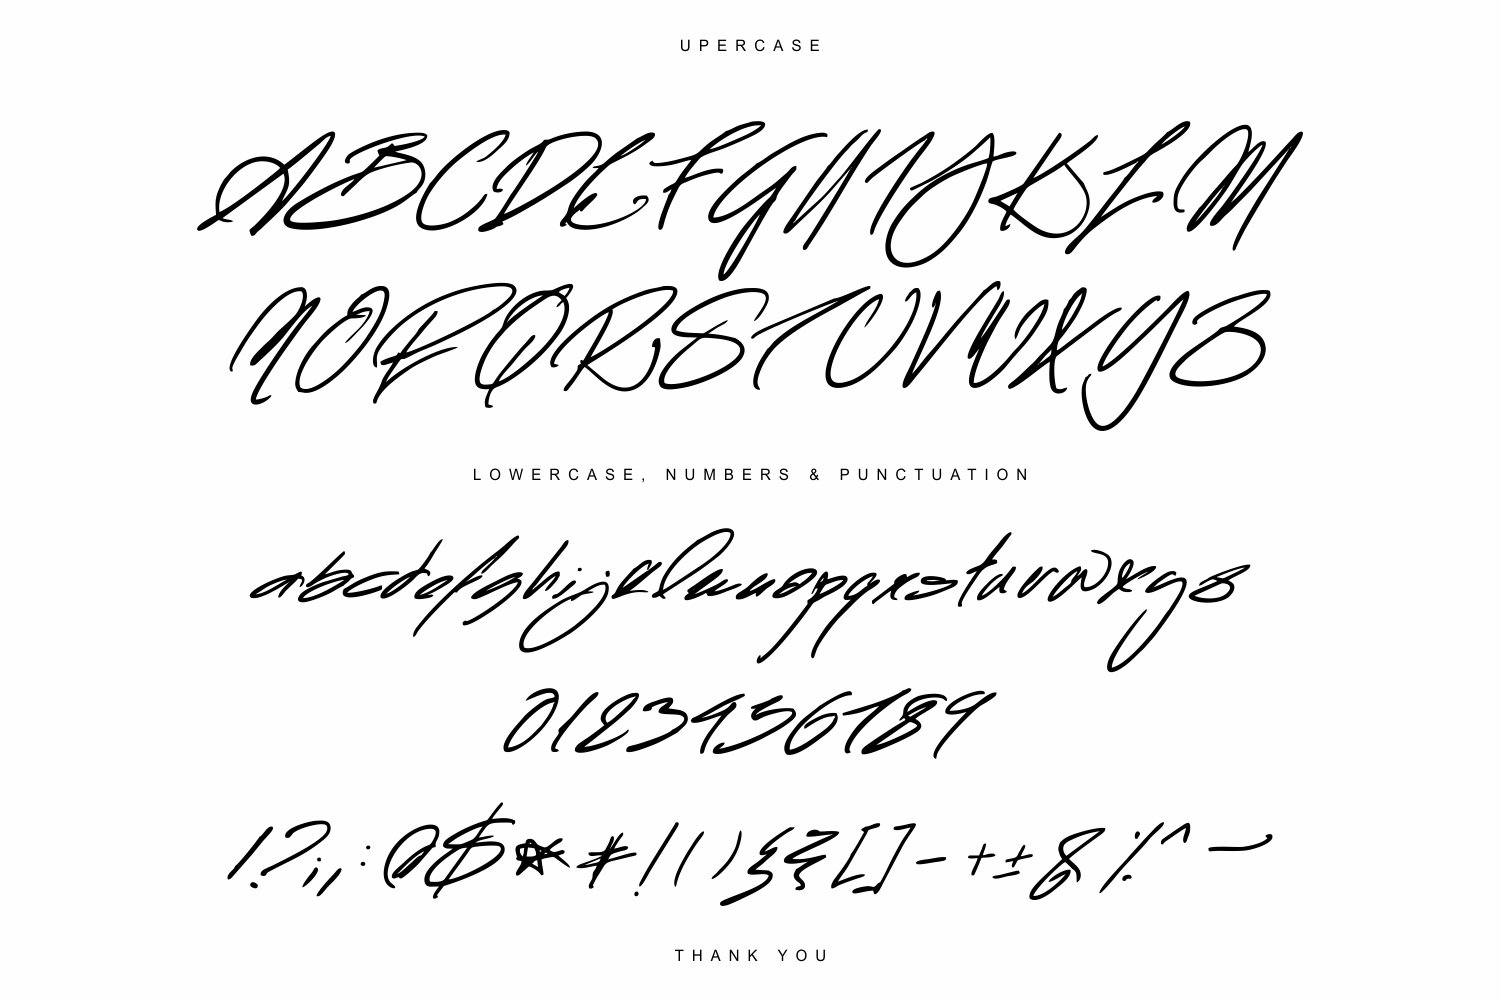 UPERCASE
ABCDEFGHIJKLM
NOPQRSTUVWXYZ
LOWERCASE, NUMBERS & PUNCTUATION
abcdefghijklmnopqrstuvwxyz
0123456789
!?;,:@$*#!(){}[]-+±&%^~
THANK YOU